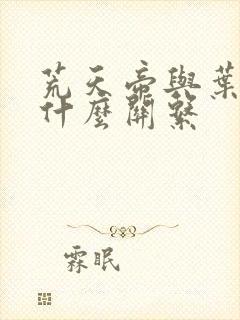 荒天帝與葉
什麼關繫
霖眠